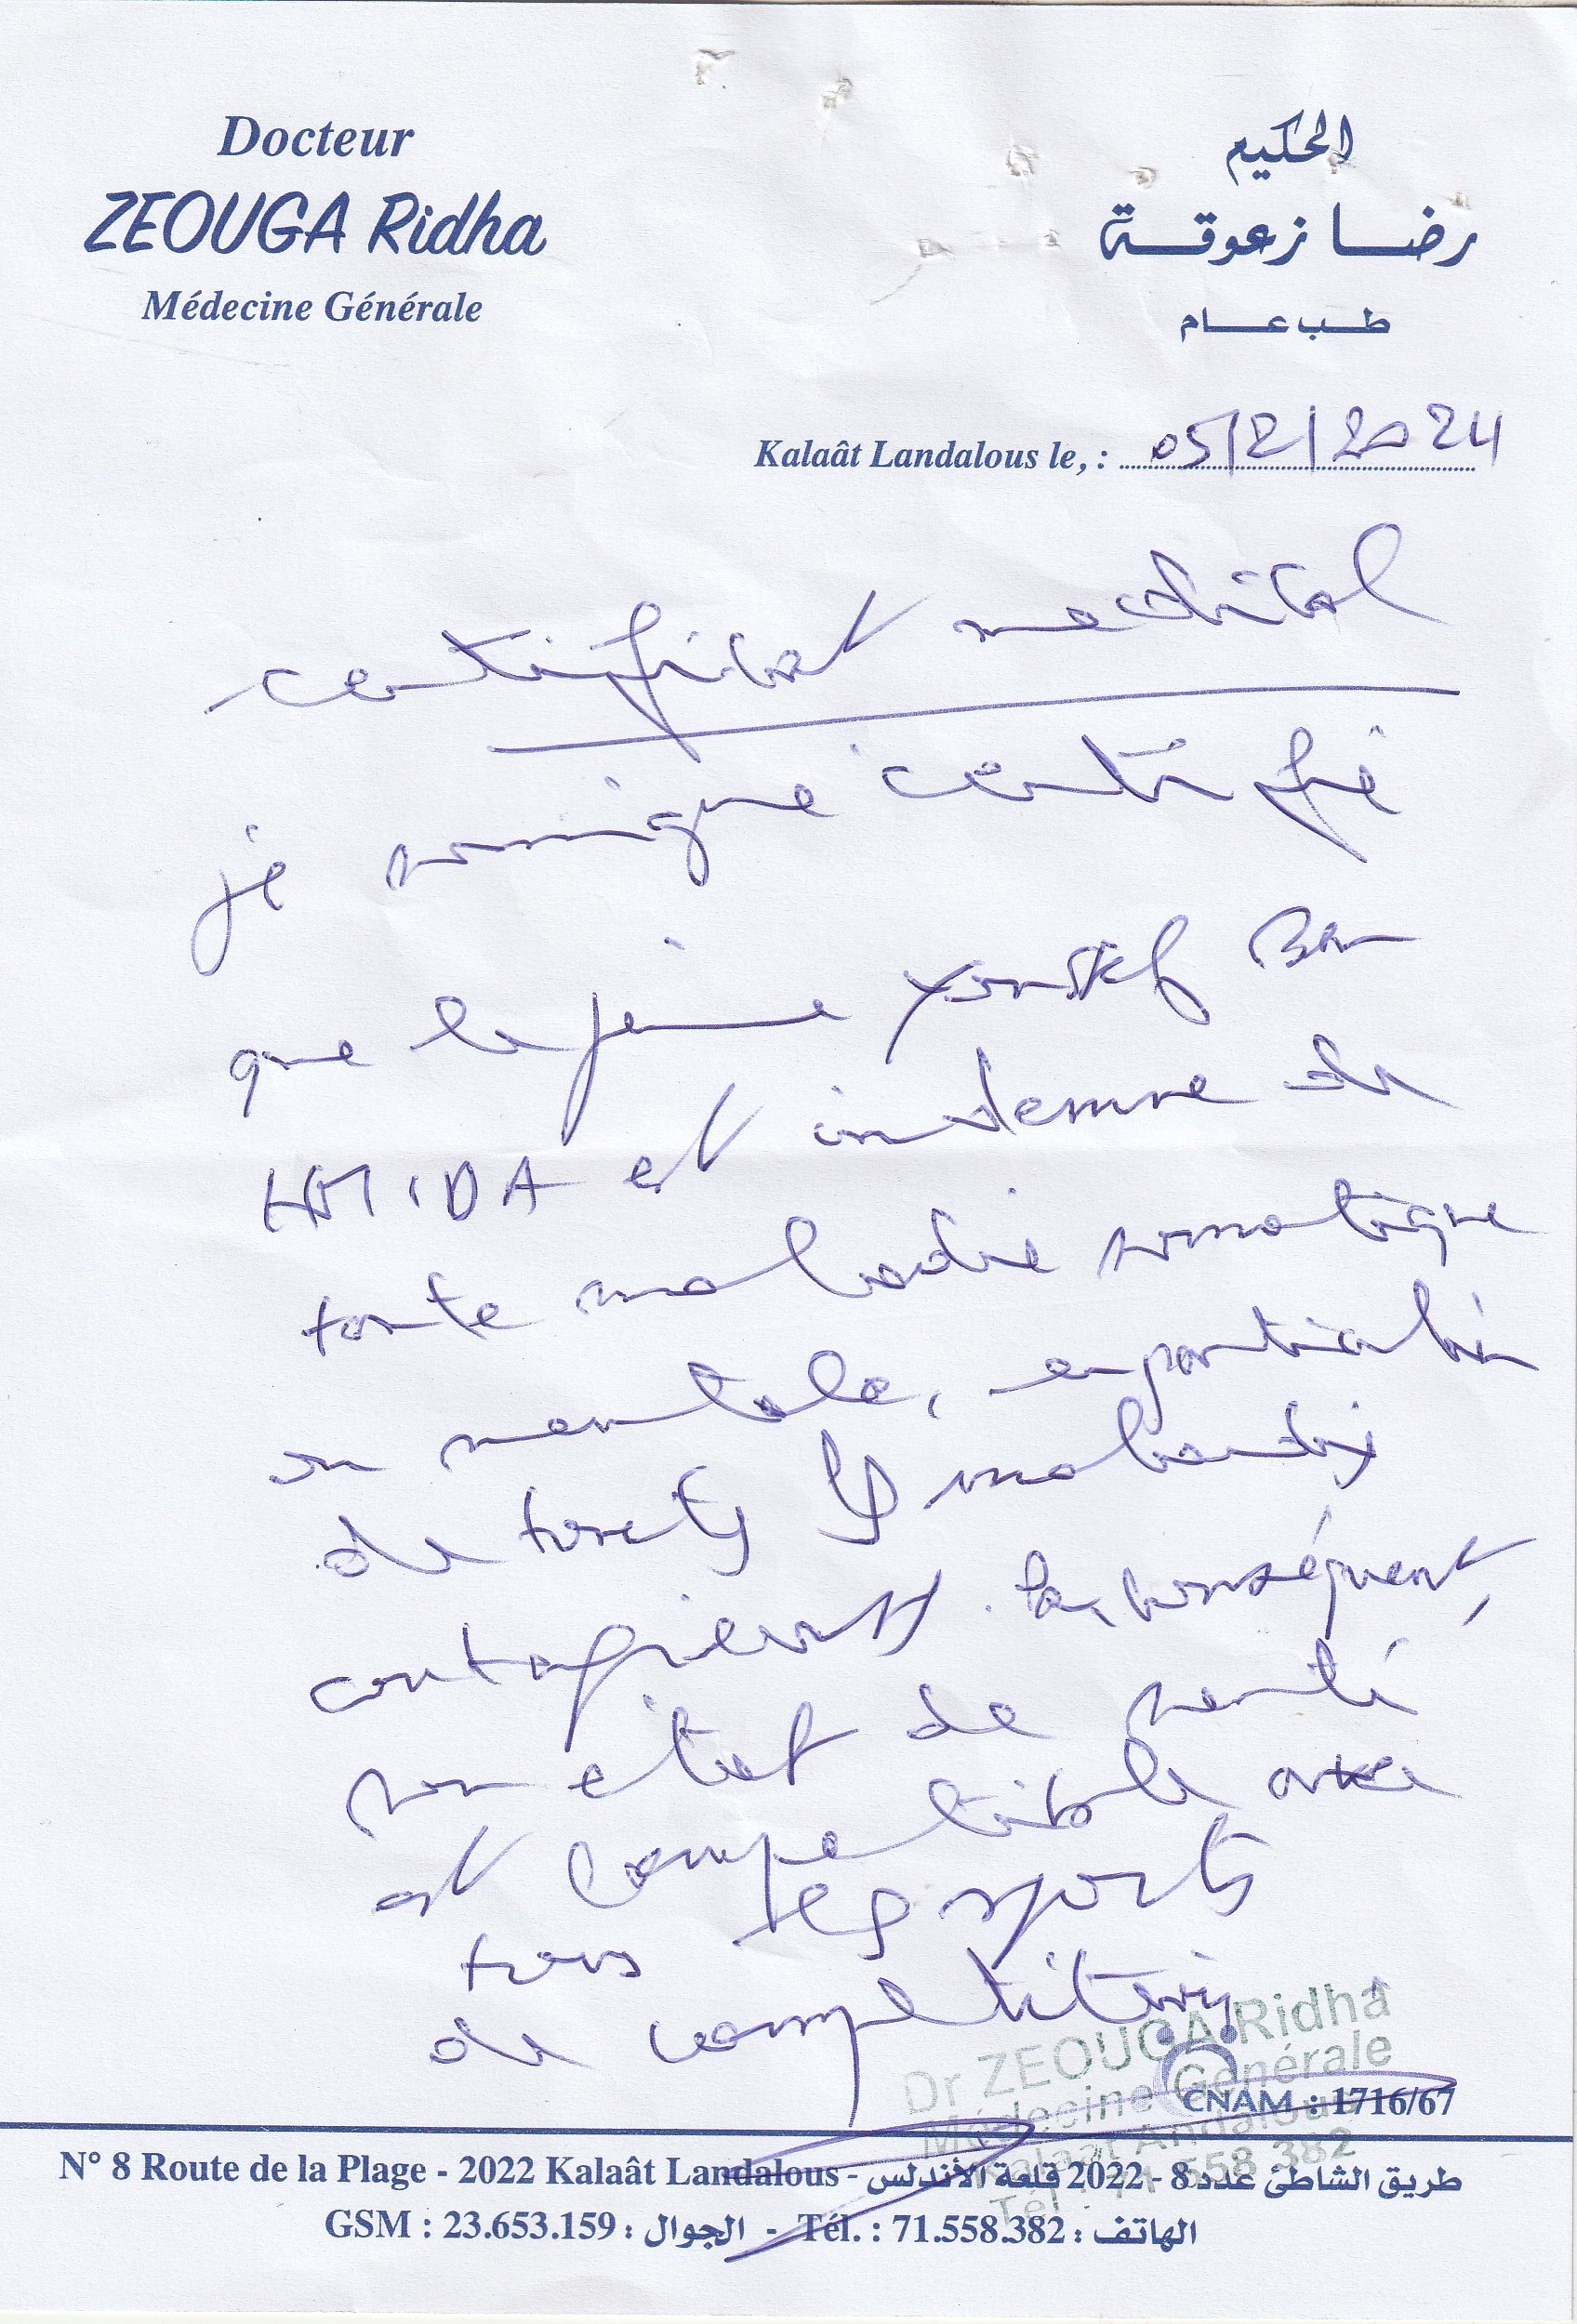 Docteur
ZEOUGA Ridha
Médecine Générale
الحكيم
رضا زعوقة
طب عام
Kalaât Landalous le, : 05/2/2024
certificat medical
je soussigne certifie
que le jeune Youssef Ben
HMIDA est indemne de
toute maladie somatique
ou mentale, en particulier
de toutes les maladies
contagieuses. Par conséquent,
son etat de santé
est compatible avec
tous les sports
de compétition
Dr ZEOUGA Ridha
Médecine Générale
Kalaat Andalous
Tél : 71 558 382
CNAM : 1716/67
N° 8 Route de la Plage - 2022 Kalaât Landalous - طريق الشاطئ عدد 8 - 2022 قلعة الأندلس
GSM : 23.653.159 : الجوال - Tél. : 71.558.382 : الهاتف